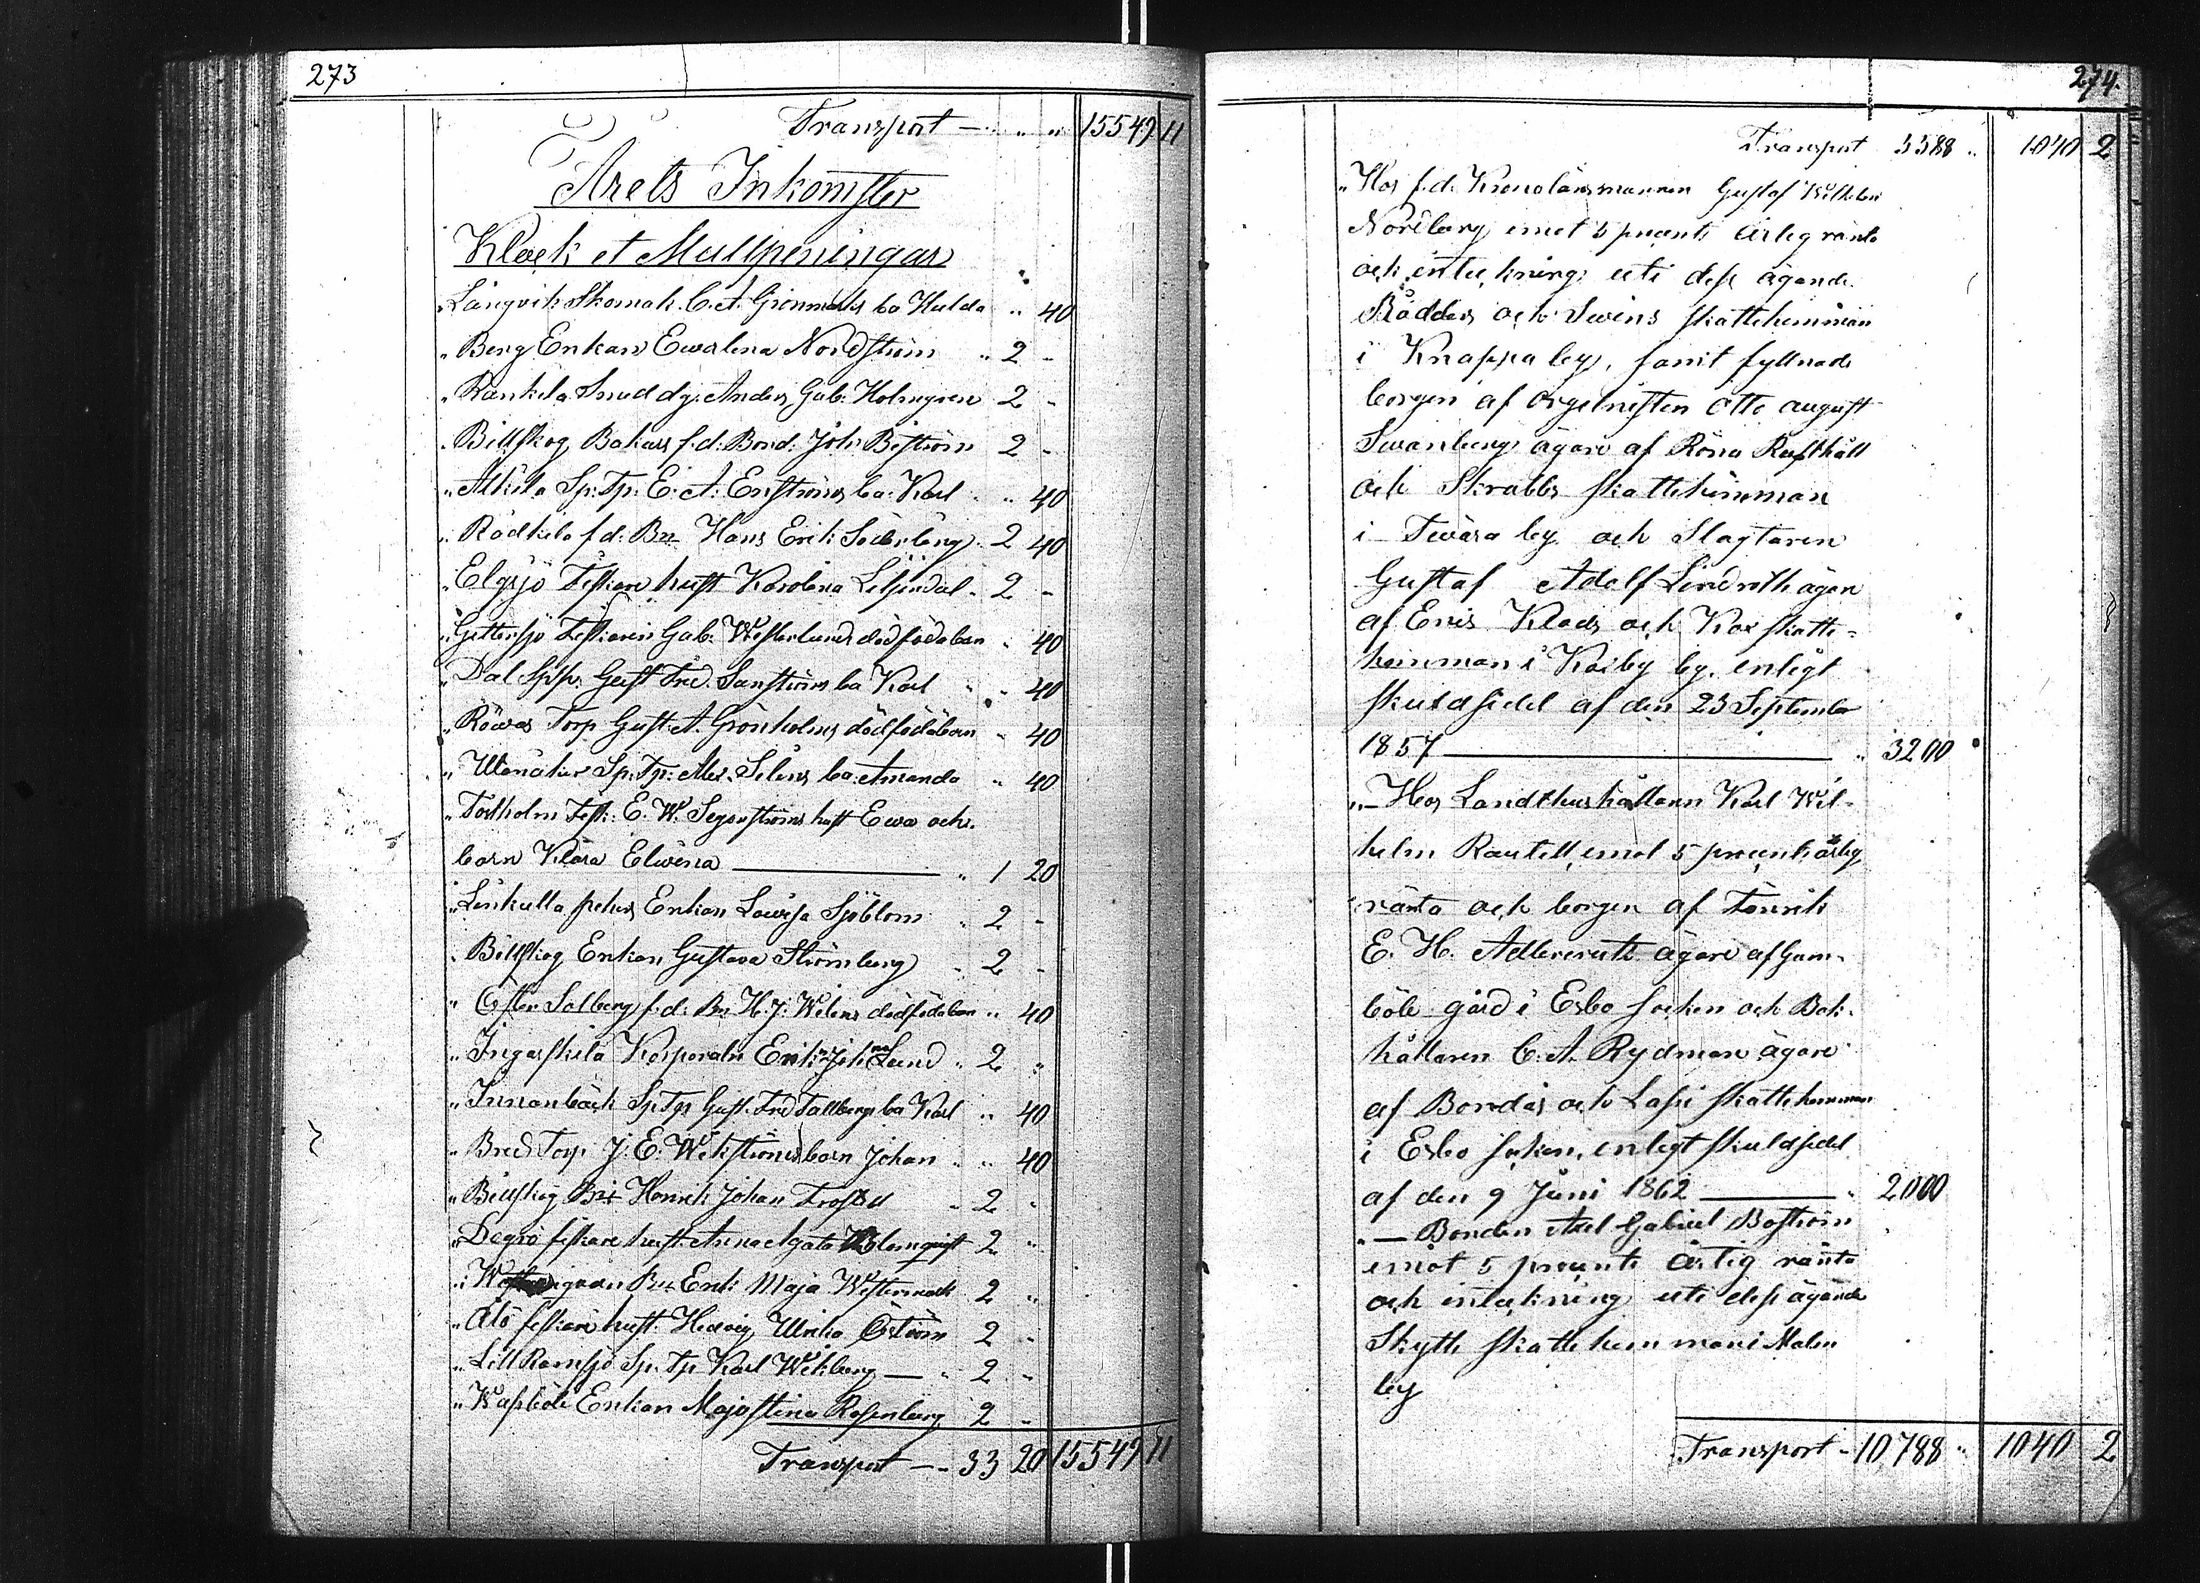 273
Transport — " " 15549 11
Årets Inkomster
Klock et Mullpeningar
" Långvik Skomak. C. A. Grönmarks ba Hulda " 40
" Berg Enkan Ewalina Nordström " 2 -
" Rankila Smeddg: Anders Gab. Holmgren 2 -
" Billskog Bakars f.d. Bond. Joh: Biström 2 -
" Alkila Sp: Tp: E: A: Enströms ba: Karl " 40
" Rådkila f d: Bn Hans Erik Söderberg 2 40
" Elgsjö Fiskare hust Karolina Liljendal 2 -
" Gettersjö Fiskaren Gab: Westerlunds dödfödabarn " 40
" Dal Sptp. Gust Fred. Sanströms ba Karl " 40
" Röwas Torp Gust. A. Grönholms dödfödabarn " 40
" Utenåker Sp: Tp: Alex. Selins ba: Amanda " 40
" Torsholm Fisk: E. W. Segerströms hust Ewa och
barn Klara Elwina — " 1 20
" Linkulla Enkan Lowisa Sjöblom " 2 -
" Billskog Enkan Gustava Strömberg - 2 -
" Öster Solberg f.d: Bn H: J: Welens dödfödabarn " 40
" Ingarskila Korporaln Erik Joh Lund " 2 "
" Innanbäck Sp: Tps Gust. Fred Tallbergs ba Karl " 40
" Bred Torp: J: E: Wikströms barn Johan " " 40
" Billskog Henrik Johan Frostd - 2 "
" Degerö fiskare hust: Anna Agata Holmqvist 2 "
" Bn Enk: Maja Westermark 2 "
" Älö fiskare hust: Hedvig Ulrika Öström 2 "
" Lill Ramsjö Sp: Tp Karl Wikberg — " 2 "
" Wasböle Enkan Majastina Rosenberg 2 -
Transport — 33 20 15549 11
274.
Transport 5588 " 1040 2
" Hos f.d. Kronolänsmannen Gustaf Wilhelm
Nordberg emot 5 procents årlig ränta
och inteckning uti dess ägande
Rådders och Swens skattehemman
i Knappa by, samt fyllnads
borgen af Orgelnisten Otto August
Swanberg ägare af Röna Rusthåll
och Skrabbs skattehemman
i Twära by och Slagtaren
Gustaf Adolf Lindroth ägare
af Eris Klads och Kos skatte=
hemman i Kaiby by, enligt
skuldsedel af den 23 September
1857 — " 3200
" — Hos Landthushållaren Karl Wil-
helm Rautell, emot 5 procents årlig
ränta och borgen af Fänrik
E. H. Adlercreutz ägare af Gum-
böle gård i Esbo socken och Bok-
hållaren C. A. Rydman ägare
af Bondas och Lassi skattehemman
i Esbo socken, enligt skuldsedel
af den 9 Juni 1862 — " 2000
" — Bonden Axel Gabriel Boström
emot 5 procents årlig ränta
och inteckning uti dess ägande
Skytte skattehemman i Malm
by
Transport — 10788 " 1040 2